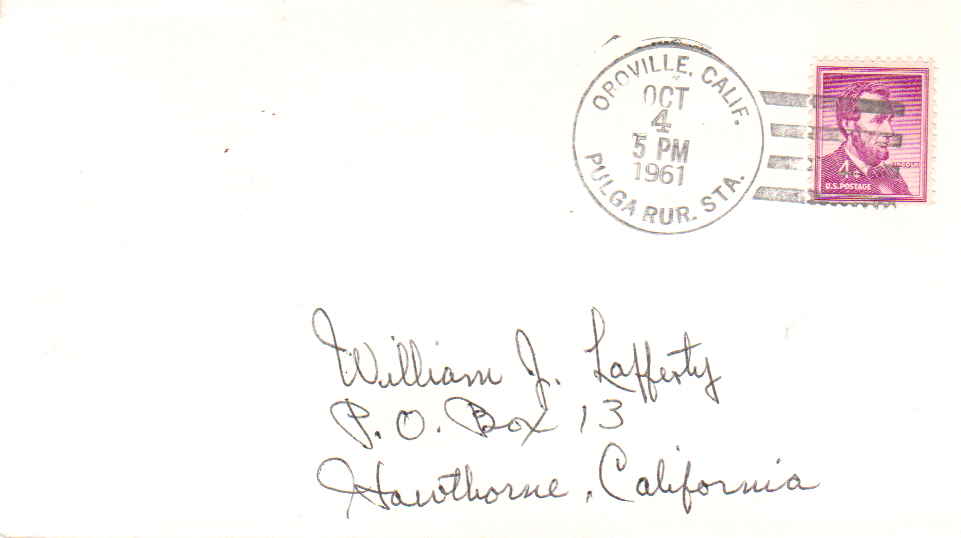 OROVILLE, CALIF.
OCT
4
5 PM
1961
PULGA RUR. STA.
4¢
U.S. POSTAGE
William J. Lafferty
P. O. Box 13
Hawthorne, California